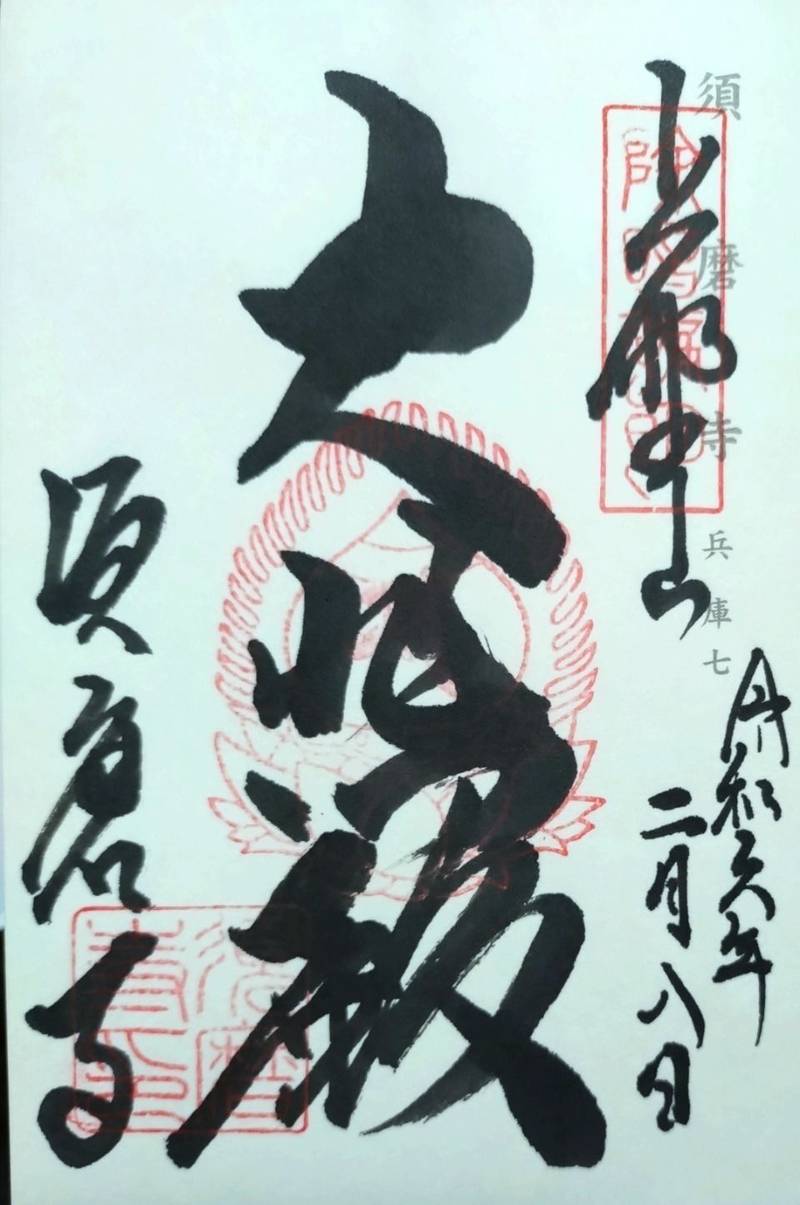 須磨寺 兵庫七
上野山
令和六年
二月八日
大悲殿
須磨寺
須磨寺印